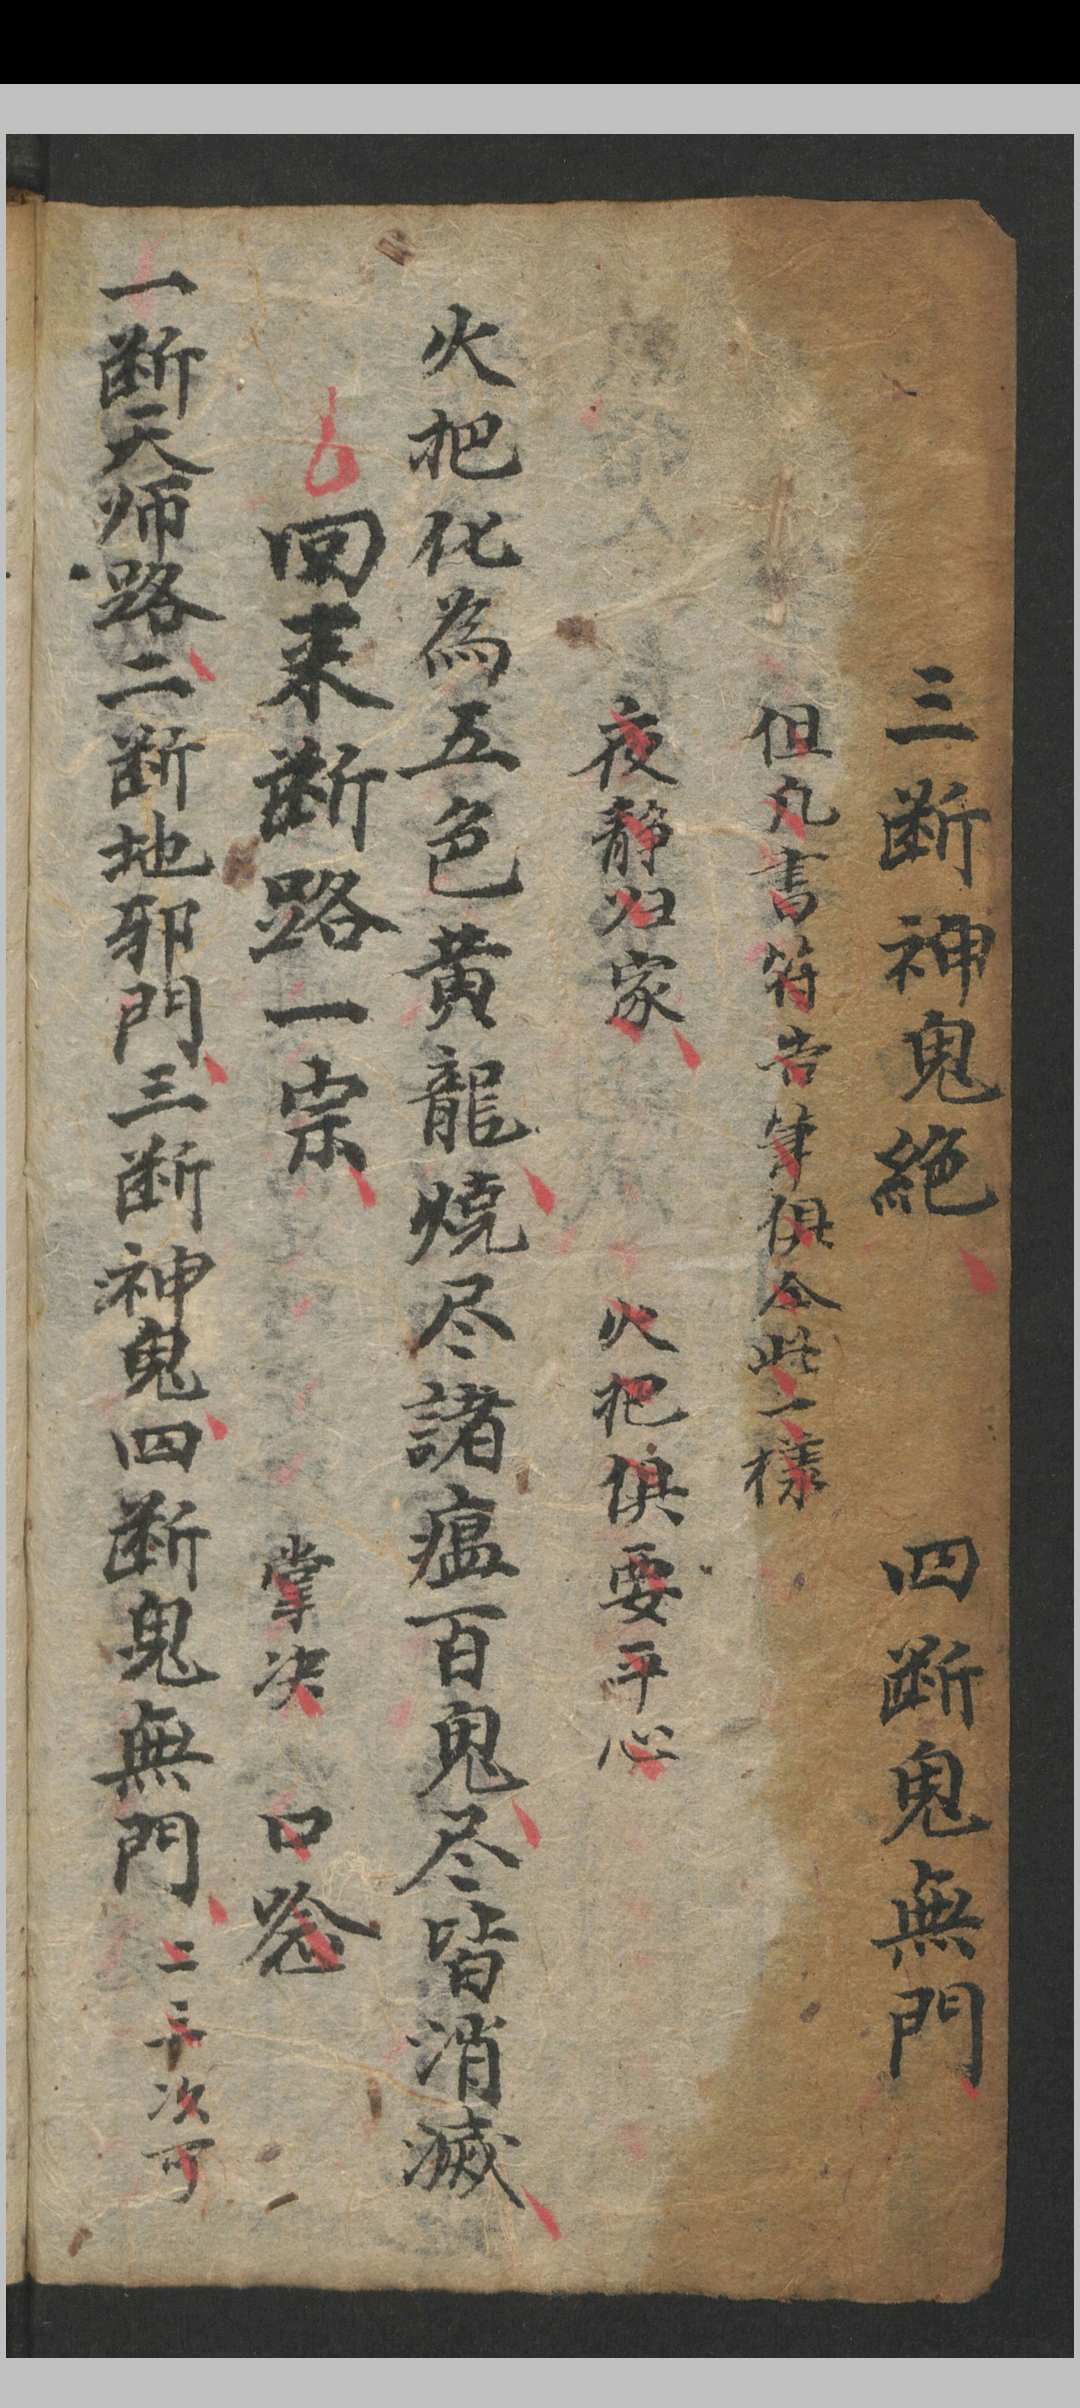 三断神鬼絕 四断鬼無門
但凡書符告筆俱仝此一樣
夜靜归家 火把俱要平心
火把化為五色黃龍燒尽諸瘟百鬼尽皆消滅
回来断路一宗 掌决 口唸
一断天师路二断地邪門三断神鬼四断鬼無門二三次可